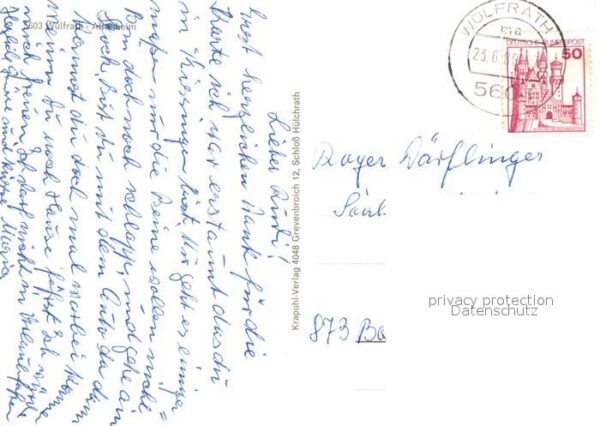 5603 Wülfrath - Altenheim
Lieber Rudi!
Erst herzlichen Dank für die
Karte ich war erstaunt das du
in Kissingen bist. Mir geht es einiger
maßen nur die Beine wollen nicht =
Bin doch noch schlapp, und gehe am
Stock. Bist du mit dem Auto da dann
kommst du doch mal vorbei
wenn du nach Hause fährst
mich freuen. Ich darf nicht in Urlaub fahren
Herzliche Grüße und Küsse Maria
Krapohl-Verlag 4048 Grevenbroich 12, Schloß Hülchrath
WÜLFRATH
ma
23.6.80
560
DEUTSCHE BUNDESPOST
50
Roger Därflinger
873 Ba
privacy protection
Datenschutz